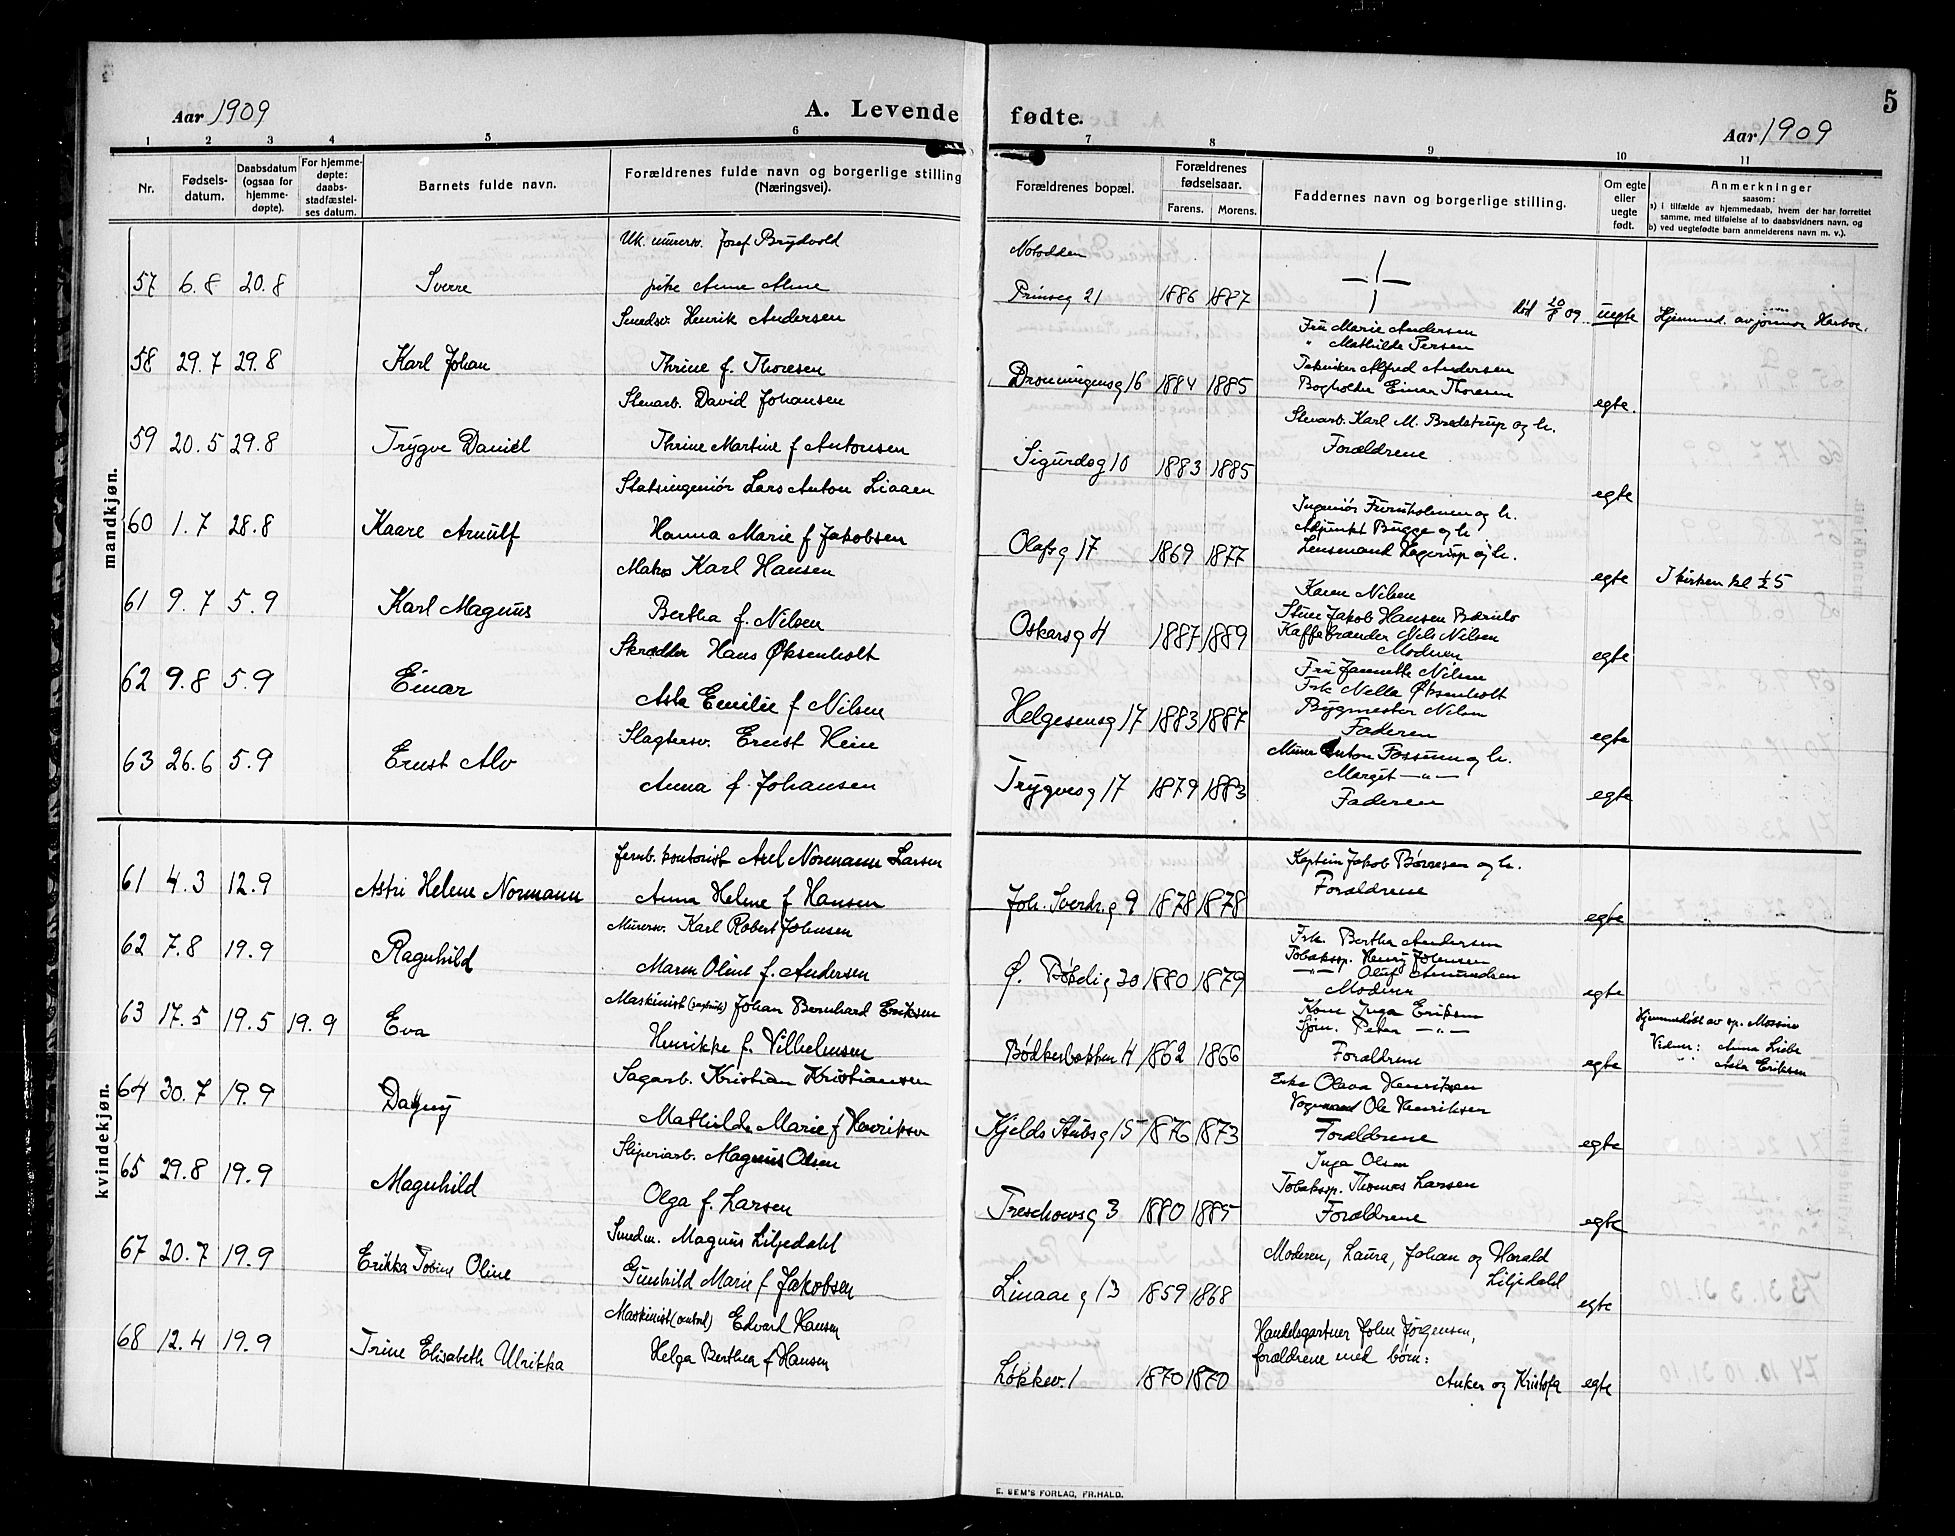 5
Aar 1909
A. Levende fødte.
Aar 1909
1 2 3 4 5 6 7 8 9 10 11
Nr.
Fødsels-
datum.
Daabsdatum
(ogsaa for
hjemme-
døpte).
For hjemme-
døpte:
daabs-
stadfæstel-
ses datum.
Barnets fulde navn.
Forældrenes fulde navn og borgerlige stilling
(Næringsvei).
Forældrenes bopæl.
Forældrenes
fødselsaar.
Farens. Morens.
Faddernes navn og borgerlige stilling.
Om egte
eller
uegte
født.
Anmerkninger
saasom:
a) i tilfælde av hjemmedaab, hvem der har forrettet
samme, med tilføielse af to daabsvidners navn, og
b) ved uegtefødte børn anmelderens navn m. v.).
mandkjøn.
Uk. murersv. Josef Brydvold
Notodden
57 6.8 20.8 Sverre pike Anna Alme
Prinseg 21 1886 1887 død 20/8 09. uegte Hjemmed. av jormor Harboe.
Smedsv. Henrik Andersen
Fru Marie Andersen
" Mathilde Persen
58 29.7 29.8 Karl Johan Thrine f. Thoresen
Tekniker Alfred Andersen
Dronningensg 16 1884 1885 Bogholder Einar Thoresen egte.
Stenarb. David Johansen
Stenarb. Karl M. Bredstrup og h.
59 20.5 29.8 Trygve Daniel Thrine Martine f Antonsen
Forældrene
Sigurdsg 10 1883 1885 egte
Statsingeniør Lars Anton Liaaen
Ingeniør Furuholmen og h.
60 1.7 28.8 Kaare Arnulf Hanna Marie f Jakobsen
Adjunkt Bugge og h.
Olafsg 17 1869 1877 Lensmand Hagerup og h.
egte I kirken kl ½5
Matros Karl Hansen
Karen Nilsen
61 9.7 5.9 Karl Magnus Bertha f. Nilsen
Stuer Jakob Hansen Bærulv
Oskarsg 4 1887 1889 Kaffebrænder Nils Nilsen
Moderen egte
Skrædder Hans Øksenholt
Fru Jannette Nilsen
62 9.8 5.9 Einar Asta Emilie f Nilsen
Frk Nella Øksenholt
Helgesensg 17 1883 1887 Bygmester Nilsen
Faderen egte
Slagtersv. Ernst Hein
Murer Anton Fossum og h.
63 26.6 5.9 Ernst Alv Anna f. Johansen
Margit —"—
Trygvesg 17 1879 1883 Faderen egte
kvindekjøn.
Jernb. kontorist Axel Normann Larsen
Kaptein Jakob Børresen og h.
61 4.3 12.9 Astri Helene Normann Anna Helene f Hansen
Forældrene
Joh. Sverdr. g 9 1878 1878 egte
Murersv. Karl Robert Johnsen
Frk. Bertha Andersen
62 7.8 19.9 Ragnhild Maren Oline f. Andersen
Tobakssp. Henry Johnsen
—"— Oluf Amundsen
Ø. Bøkelig 20 1880 1879 Moderen egte
Maskinist Johan Bernhard Eriksen
Kone Inga Eriksen
63 17.5 19.5 19.9 Eva Henrikke f. Vilhelmsen
Sjøm. Peter —"—
Bødkerbakken 4 1862 1866 Forældrene egte
Hjemmedøbt av sp. Mossine
Vidner: Anna Liebe
" Asta Eriksen
Sagarb. Kristian Kristiansen
Enke Olava Henriksen
64 30.7 19.9 Dagny Mathilde Marie f Henriksen
Vognmand Ole Henriksen
Kjelds Stubsg 15 1876 1873 Forældrene egte
Sliperiarb. Magnus Olsen
Inga Olsen
65 29.8 19.9 Magnhild Olga f. Larsen
Tobakssp. Thomas Larsen
Treschowsg 3 1880 1885 Forældrene egte
Smedm. Magnus Liljedahl
Moderen, Laura, Johan og Harald
Liljedahl
67 20.7 19.9 Erikka Tobine Oline Gunhild Marie f Jakobsen
Linaae g 13 1859 1868 egte
Maskinist Edvard Hansen
Handelsgartner John Jørgensen,
68 12.4 19.9 Trine Elisabeth Ulrikka Helga Berthea f Hansen
forældrene med børn:
Løkkev. 1 1870 1870 Anker og Kristofa egte
E. SEM'S FORLAG, FR.HALD.